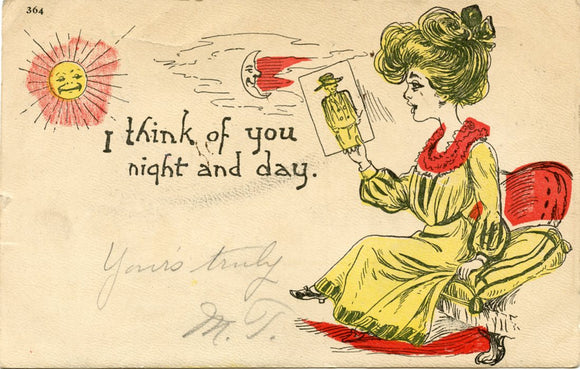 364
I think of you
night and day.
Your's truly
M. T.